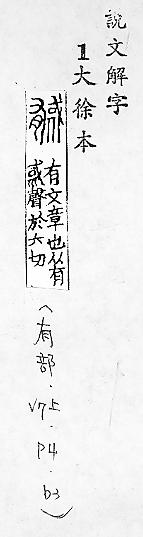 說文解字
1大徐本
有文章也从有
惑聲於六切
(有部.V7上.P4.b3)